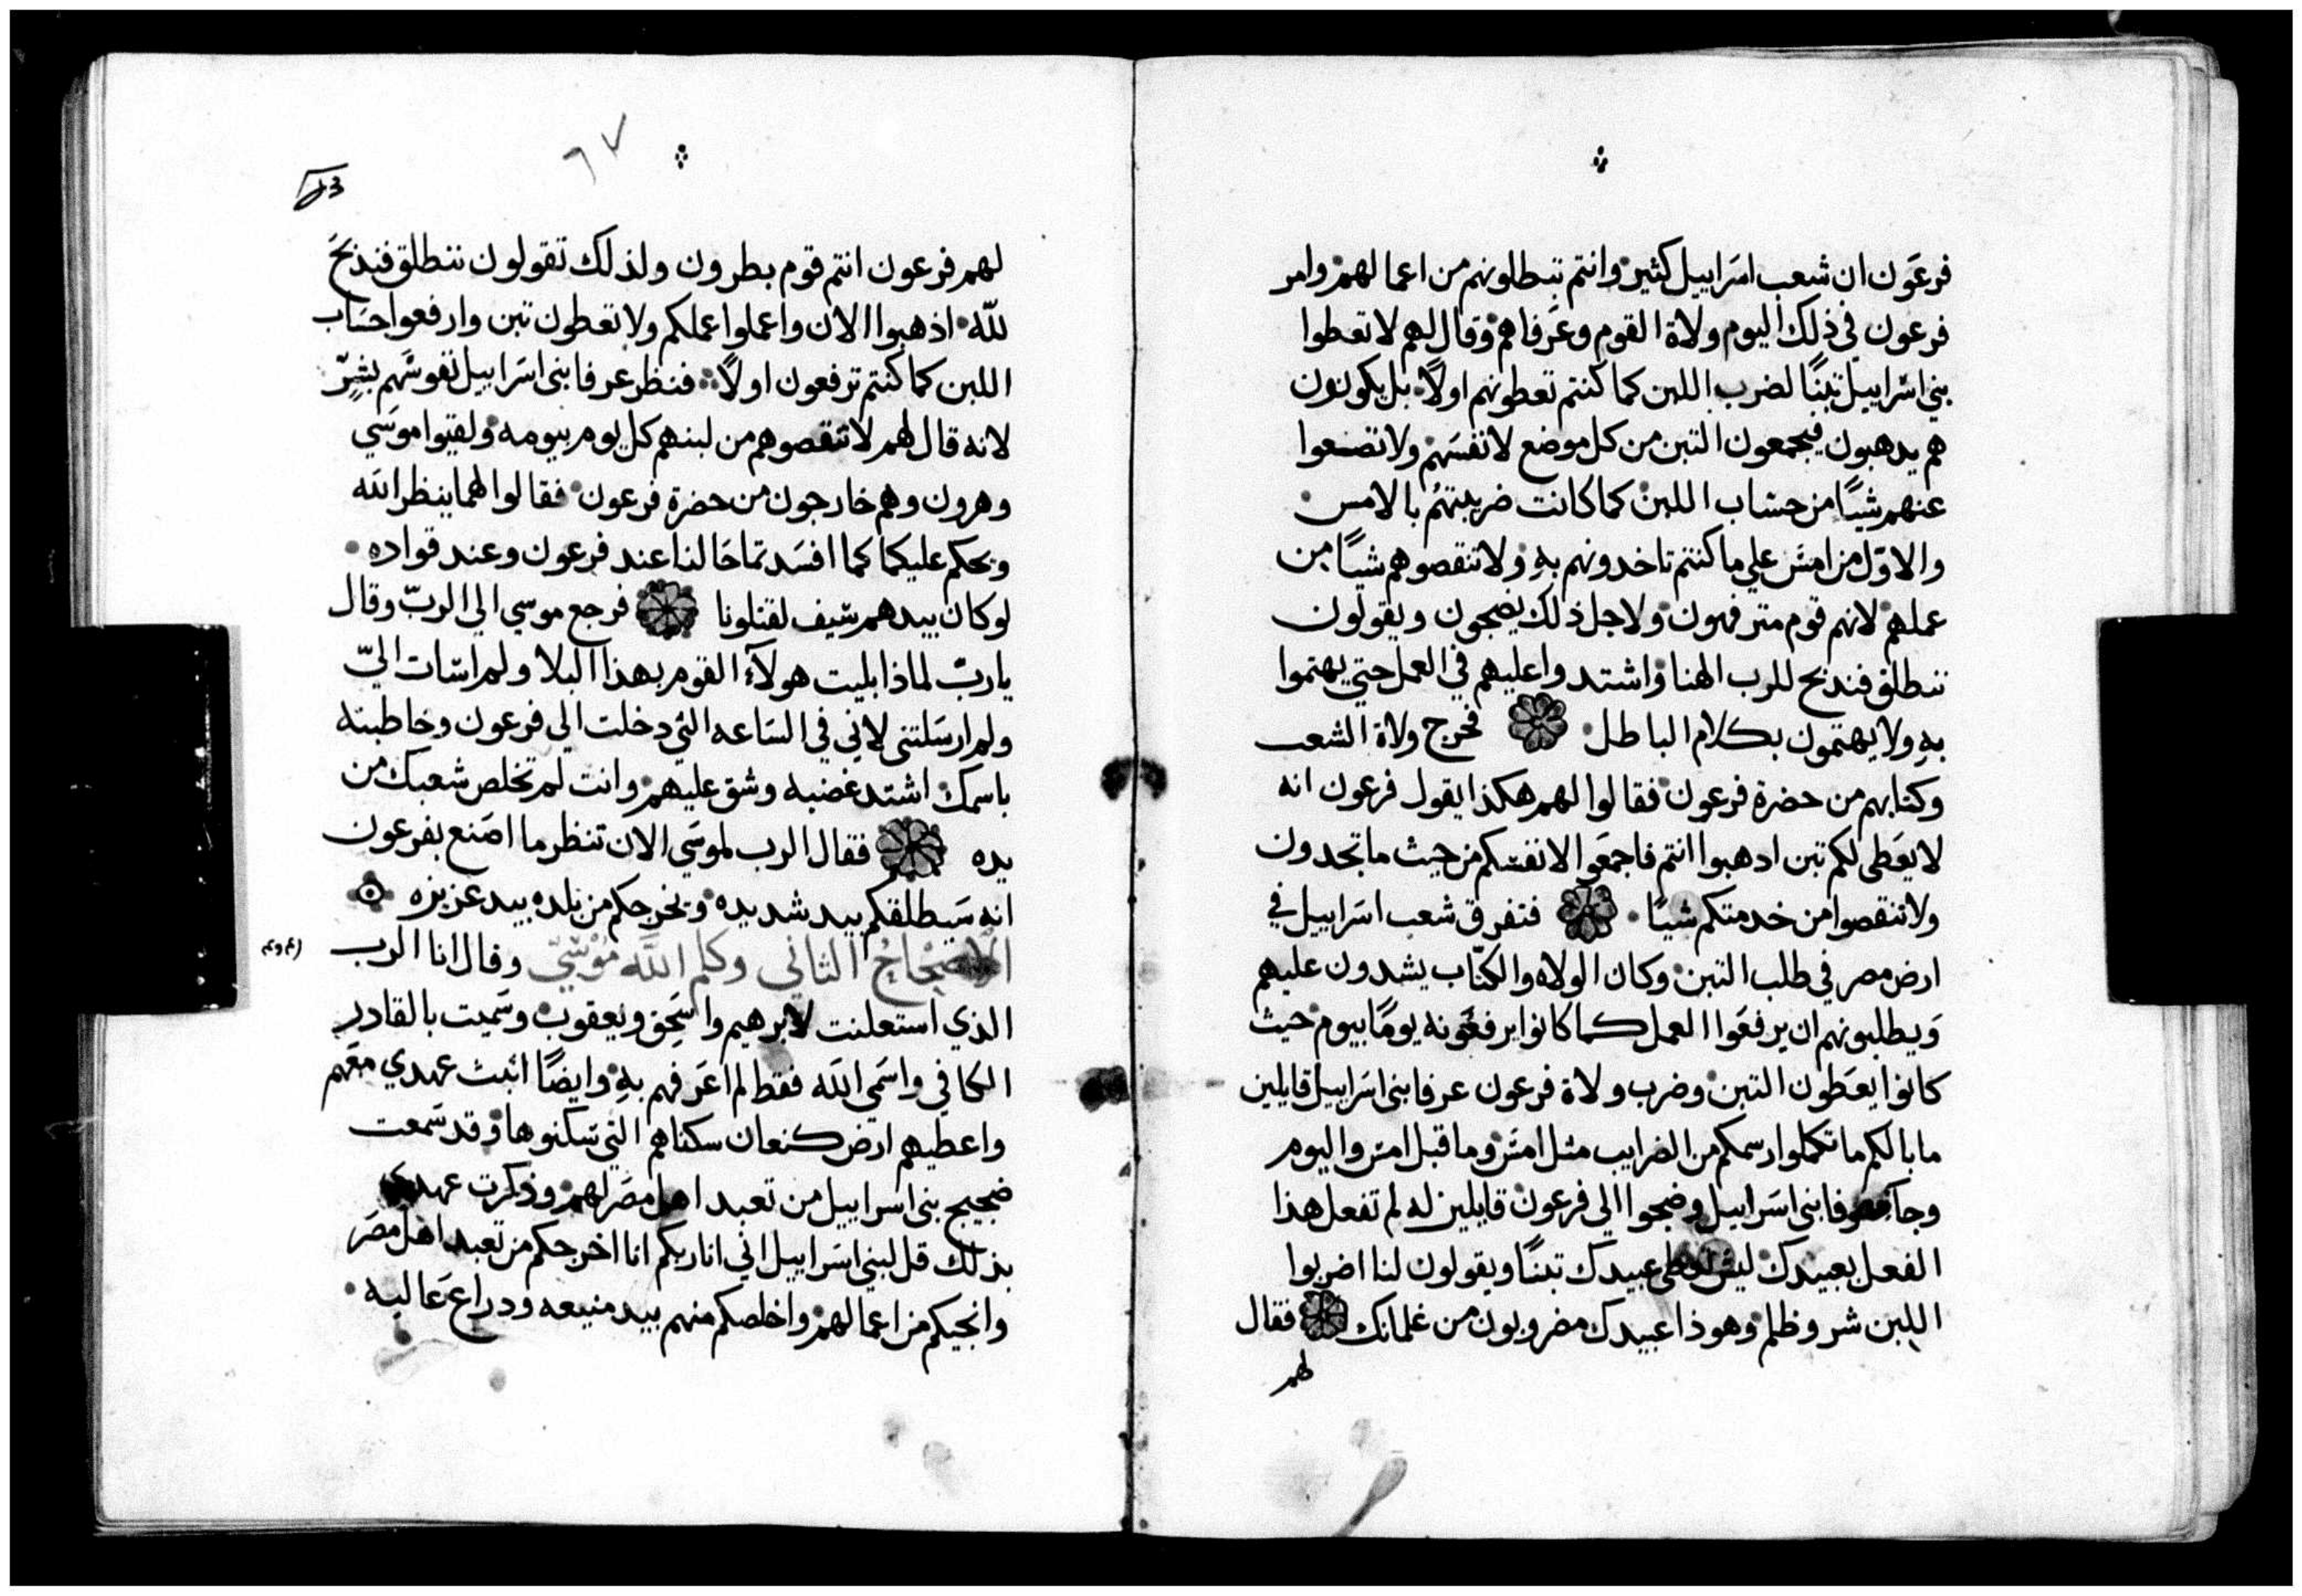 فرعَون ان شعب اسَراييل كثير وانتم تبطلونهم من اعمالهم وامر
فرعون في ذلك اليوم ولاة القوم وعَرفاهم وقال لهم لا تعطوا
بني اسَراييل تبنًا لضرب اللبن كما كنتم تعطونهم اولاً بل يكونون
هم يدهبون فيجمعون التبن من كل موضع لانفسَهم ولا تضعوا
عنهم شيًا من حسَاب اللبن كما كانت ضريبتهُم بالامس
والاوّل من امسَ علي ما كنتم تاخدونهم بهِ ولا تنقصوهم شيًا من
عملهم لانهم قوم مترفهون ولاجل ذلك يضجون ويقولون
ننطلق فندبح للرب الهنا واشتدوا عليهم في العمل حتي يهتموا
بهِ ولا يهتمون بكلام الباطل فخرج ولاة الشعب
وكتابهم من حضرة فرعون فقالوا لهم هكذا يقول فرعون انه
لا يعَطى لكم تبن ادهبوا انتم فاجمعَوا لانفسَكم من حيث ما تجدون
ولا تنقصوا من خدمتكم شيًا فتفرق شعب اسَراييل في
ارض مصر في طلب التبن وكان الولاه والكتّاب يشدون عليهم
وَيطلبونهم ان يرفعَوا العمل كما كانوا يرفعَونه يومًا بيوم حيث
كانوا يعَطون التبن وضرب ولاة فرعون عرفا بنى اسَراييل قايلين
ما بالكم ما تكملوا رسمكم من الضرايب مثل امسَ وما قبل امس واليوم
وجا عرفا بنى اسَراييل وضجوا الي فرعون قايلين له لم تفعل هذا
الفعل بعبيدك ليس عبيدك تبنًا ويقولون لنا اضربوا
اللبن شر وظلم وهوذا عبيدك مضروبون من غلمانك فقال
لهم
٦٧
لهم فرعون انتم قوم بطرون ولذلك تقولون ننطلق فنذبحَ
للّه اذهبوا الان واعملوا عملكم ولا تعطون تبن وارفعوا حسَاب
اللبن كما كنتم ترفعون اولاً فنظر عرفا بنى اسَراييل نفوسَهم بشِرّ
لانه قال لهم لا تنقصوهم من لبنهم كل يوم بيومه ولقيوا موسَي
وهرون وهم خارجون من حضرة فرعون فقالوا لهما ينظر الله
ويحكم عليكما كما افسَدتما حَالنا عند فرعون وعند قواده
لو كان بيدهم سَيف لقتلونا فرجع موسي الي الربّ وقال
يا ربّ لماذا ابليت هولآء القوم بهذا البلا ولم اسَات اليّ
ولم ارسَلتنى لاني في السَاعه التي دخلت الي فرعون وخاطبته
باسمك اشتد غضبه وشق عليهم وانت لم تخلص شعبك من
يده فقال الرب لموسَي الان تنظر ما اصَنع بفرعون
انه سَيطلقكم بيد شديده ويخرجكم من بلده بيد عزيزه
الاصحاحُ الثاني وكلم اللَّه مُوسَيّ وقال انا الرب
الذي استعلنت لابرهيم واسَحق ويعقوب وسَميت بالقادر
الكافي واسَمي الله فقط لم اعَرفهم بهِ وايضًا اثبت عهدي معَهم
واعطيهم ارض كنعان سكناهم التي سَكنوها وقد سَمعت
ضجيج بنى اسَراييل من تعبد اهل مصَر لهم وذكرت عهدي
بذلك قل لبنى اسَراييل اني انا ربكم انا اخرجكم من تعبد اهل مصَر
وانجيكم من اعمالهم واخلصكم منهم بيد منيعه ودراع عَاليه